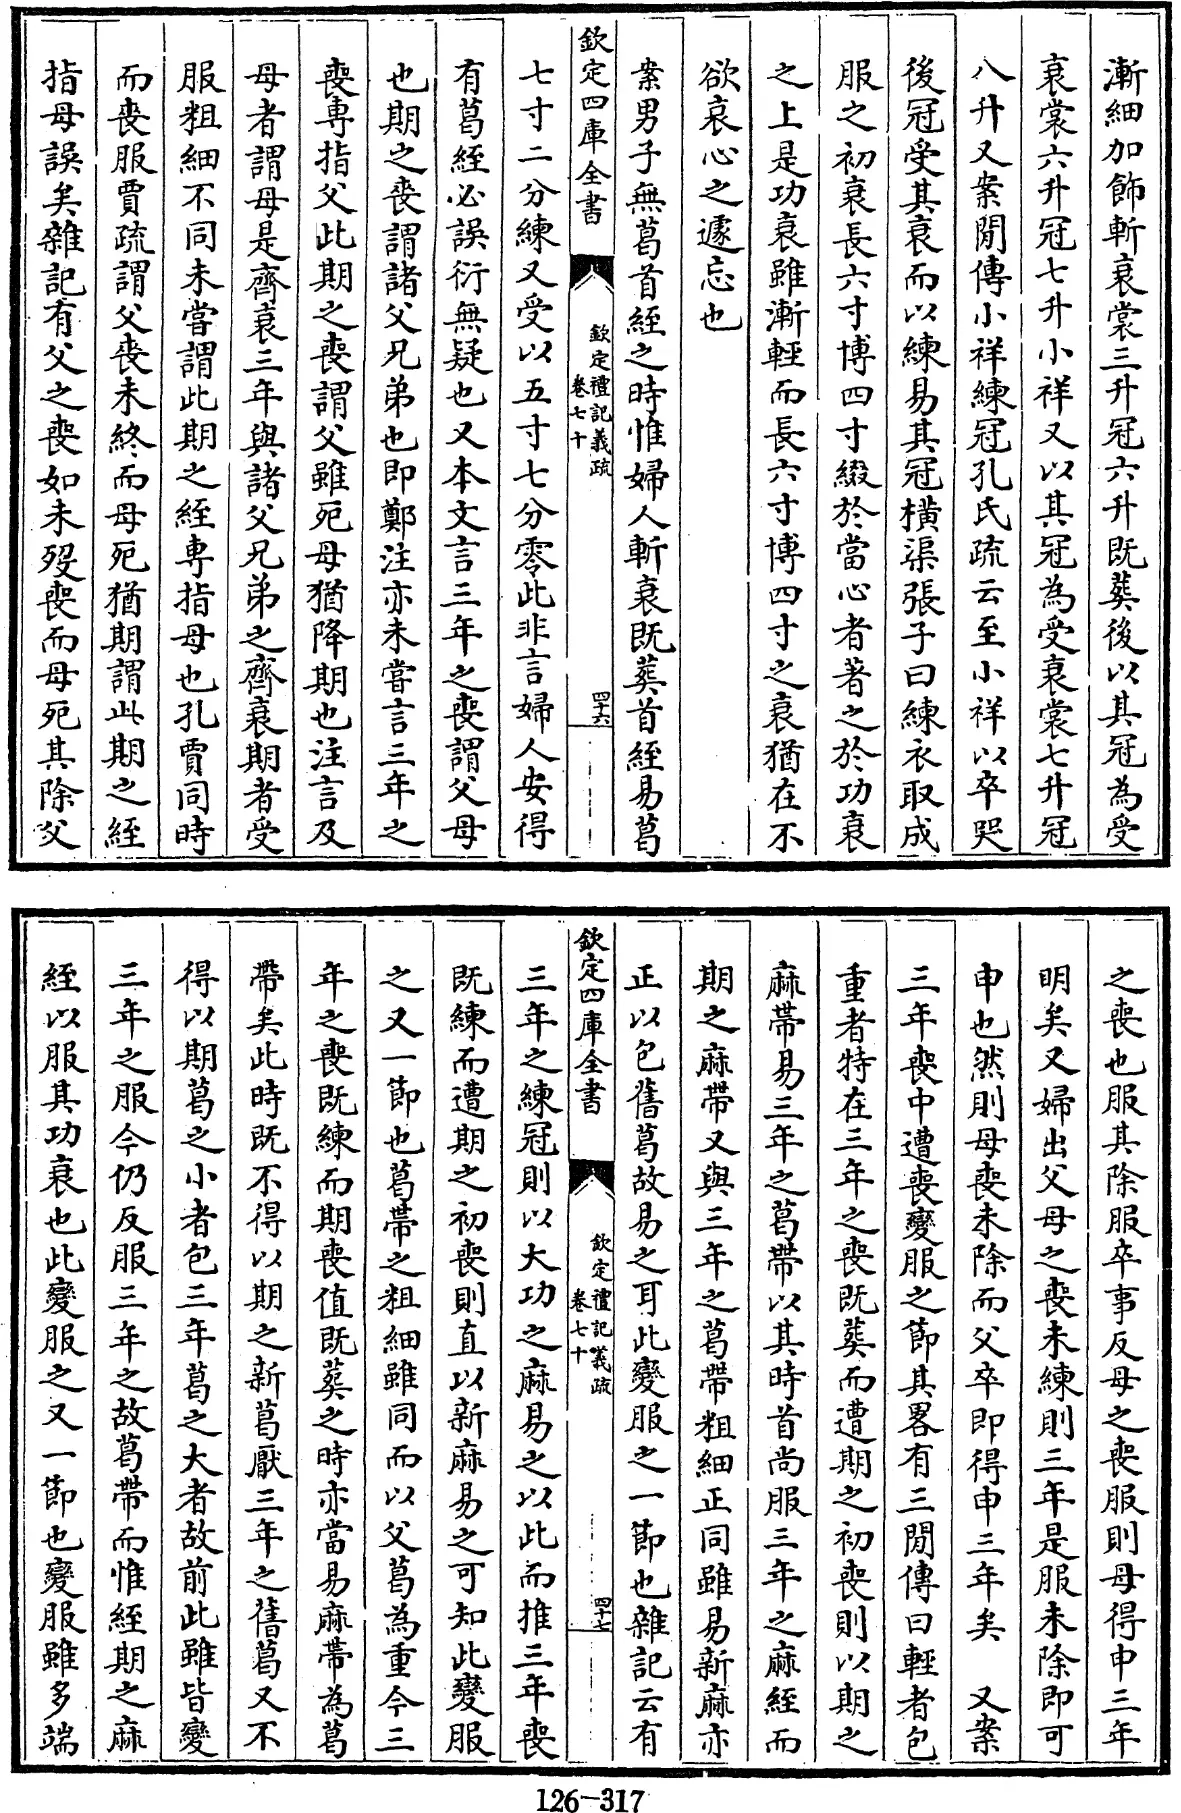 漸細加飾斬衰裳三升冠六升既葬後以其冠為受
衰裳六升冠七升小祥又以其冠為受衰裳七升冠
八升又案閒傳小祥練冠孔氏疏云至小祥以卒哭
後冠受其衰而以練易其冠橫渠張子曰練衣取成
服之初衰長六寸博四寸綴於當心者著之於功衰
之上是功衰雖漸輕而長六寸博四寸之衰猶在不
欲哀心之遽忘也
案男子無葛首絰之時惟婦人斬衰既葬首絰易葛
欽定四庫全書
欽定禮記義疏
卷七十
四十六
七寸二分練又受以五寸七分零此非言婦人安得
有葛絰必誤衍無疑也又本文言三年之喪謂父母
也期之喪謂諸父兄弟也即鄭注亦未嘗言三年之
喪專指父此期之喪謂父雖死母猶降期也注言及
母者謂母是齊衰三年與諸父兄弟之齊衰期者受
服粗細不同未嘗謂此期之絰專指母也孔賈同時
而喪服賈疏謂父喪未終而母死猶期謂此期之絰
指母誤矣雜記有父之喪如未歿喪而母死其除父
之喪也服其除服卒事反母之喪服則母得申三年
明矣又婦出父母之喪未練則三年是服未除即可
申也然則母喪未除而父卒即得申三年矣　又案
三年喪中遭喪變服之節其畧有三閒傳曰輕者包
重者特在三年之喪既葬而遭期之初喪則以期之
麻帶易三年之葛帶以其時首尚服三年之麻絰而
期之麻帶又與三年之葛帶粗細正同雖易新麻亦
正以包舊葛故易之耳此變服之一節也雜記云有
欽定四庫全書
欽定禮記義疏
卷七十
四十七
三年之練冠則以大功之麻易之以此而推三年喪
既練而遭期之初喪則直以新麻易之可知此變服
之又一節也葛帶之粗細雖同而以父葛為重今三
年之喪既練而期喪值既葬之時亦當易麻帶為葛
帶矣此時既不得以期之新葛厭三年之舊葛又不
得以期葛之小者包三年葛之大者故前此雖皆變
三年之服今仍反服三年之故葛帶而惟絰期之麻
絰以服其功衰也此變服之又一節也變服雖多端
126-317